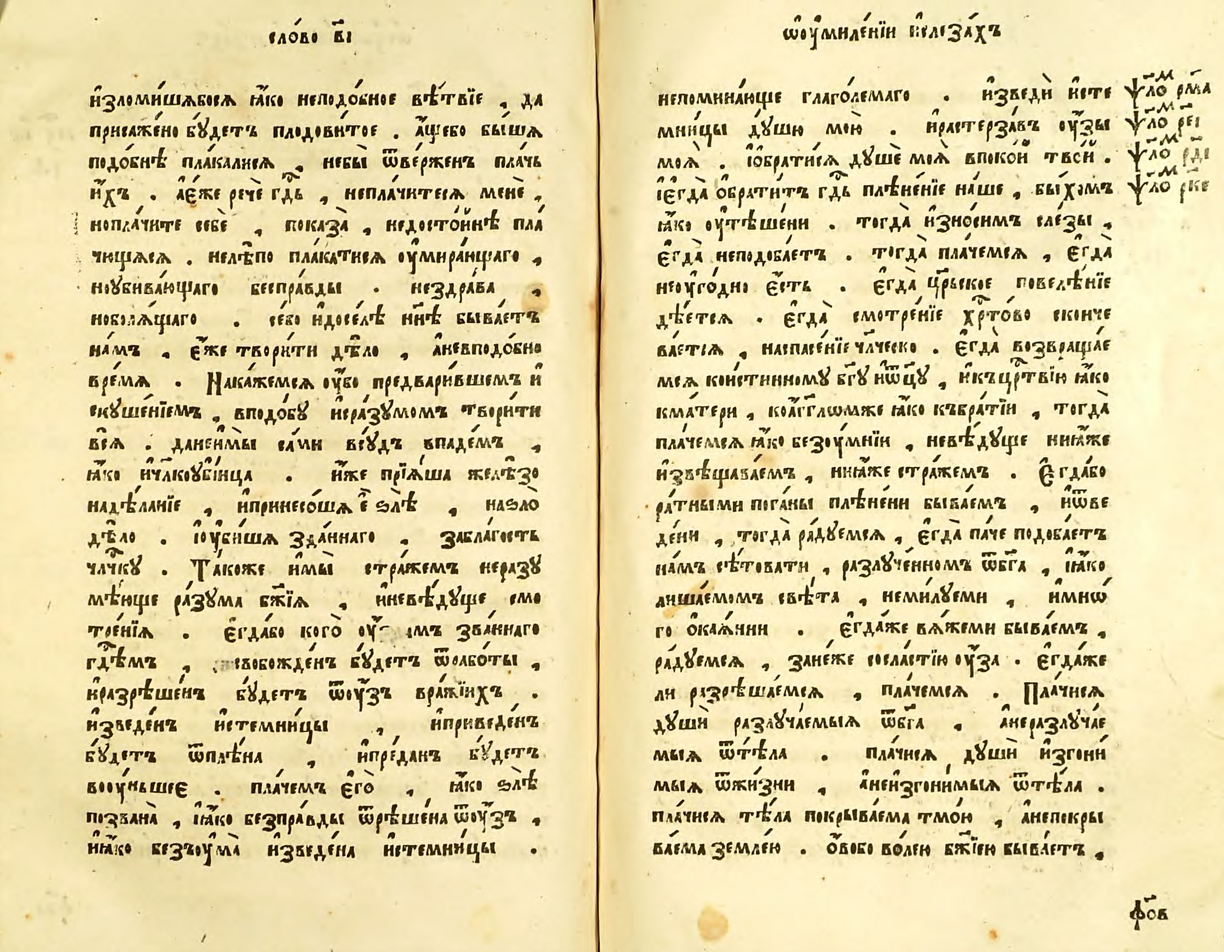 сло́во в҃і
и҆зломи́шѧбосѧ ꙗ҆́ко неподо́бное вѣ́твїе , да
присажено̀ бꙋ́детъ плодови́тое . а҆́щебо бы́шѧ
подо́бнѣ пла́калисѧ , небы̀ ѿве́рженъ пла́чь
и҆́хъ . а҆е҆́же речѐ гд҇ь , непла́читесѧ менѐ ,
нопла́чите себѐ , показа̀ , недосто́йнѣ пла
чю́щѧсѧ . нелѣ́по пла́катисѧ оу҆мира́ющаго ,
ноубива́ющаго беспра́вды . нездра́ва ,
ноболѧ́щаго . се́бо и҆досе́лѣ нн҃ѣ быва́етъ
на́мъ , є҆́же твори́ти дѣ́ло , а҆невподо́бно
вре́мѧ . Нака́жемсѧ оу҆́бо предвари́вшемъ и҆
скꙋше́нїемъ , вподо́бꙋ и҆ра́зꙋмомъ твори́ти
всѧ̀ . данеи҆мы̀ са́ми всꙋ́дъ впаде́мъ ,
ꙗ҆́ко и҆чл҃коуби́ица . и҆̀же прїѧ́ша желѣ́зо
надѣ́ланїе , и҆принесо́шѧ є҆̀ ѕлѣ̀ , наѕло̀
дѣ́ло . і҆оу҆би́шѧ зда́ннаго , забла́гость
чл҃чкꙋ . Та́коже и҆мы̀ стра́жемъ неразꙋ
мѣ́юще ра́зꙋма бж҃їѧ , и҆невѣ́дꙋще смо
тре́нїѧ . є҆гда́бо кого̀ зва́ннаго
гд҇емъ , свобожде́нъ бꙋ́детъ ѿрабо́ты ,
и҆разрѣше́нъ бꙋ́детъ ѿоу҆́зъ вра́жїихъ .
и҆зведе́нъ и҆стемни́цы , и҆приведе́нъ
бꙋ́детъ ѿплѣ́на , и҆пре́данъ бꙋ́детъ
вооу҆́ньшее . пла́чемъ є҆го̀ , ꙗ҆́ко ѕлѣ̀
позва́на , і҆ꙗ҆́ко безпра́вды ѿрѣше́на ѿоу҆́зъ ,
и҆ꙗ҆́ко безъоу҆ма̀ и҆зведе́на и҆стемни́цы .
ѡ҆оу҆миле́нїи и҆слеза́хъ
непомина́юще глаго́лемаго . и҆зведѝ и҆сте
мни́цы дꙋ́шю мою̀ . и҆растерза́въ оу҆́зы
моѧ̀ . і҆ѡбрати́сѧ дꙋшѐ моѧ̀ впоко́й тво́й .
і҆є҆гда̀ ѡ҆брати́тъ гд҇ь плѣне́нїе на́ше , бы́хомъ
ꙗ҆́ко оу҆тѣ́шени . тогда̀ и҆зно́симъ сле́зы ,
є҆гда̀ неподоба́етъ . тогда̀ пла́чемсѧ , є҆гда̀
неоу҆го́дно є҆́сть . є҆гда̀ цр҇ьское повелѣ́нїе
дѣ́етсѧ . є҆гда̀ смотре́нїе хр҇то́во сконче
ва́етсѧ , наспасе́нїе чл҃ческо . є҆гда̀ возвраща́е
мсѧ кои҆́стинномꙋ бг҃ꙋ и҆ѻ҆ц҃ꙋ , и҆къцр҇твїю ꙗ҆́ко
кма́тери , коа҆́гг҃лѡмже ꙗ҆́ко къбра́тїи , тогда̀
пла́чемсѧ ꙗ҆́ко безоу́мнїи , невѣ́дꙋще ниꙗ҆́же
и҆звѣщава́емъ , ниꙗ҆́же стра́жемъ . Є҆гда́бо
ра́тными пога́ны плѣне́ни быва́емъ , и҆ѿве
де́ни , тогда̀ ра́дꙋемсѧ , є҆гда̀ па́че подоба́етъ
на́мъ сѣ́товати , разлꙋче́нномъ ѿбг҃а , і҆ꙗ҆́ко
лиша́емомъ свѣ́та , неми́лꙋеми , и҆мно́
го ѻ҆каѧ́нни . є҆гда́же вѧ́жеми быва́емъ ,
ра́дꙋемсѧ , зане́же сосла́стїю оу҆́за . є҆гда́же
ли разрѣша́емсѧ , пла́чемсѧ . Пла́чисѧ
дꙋшѝ разлꙋча́емыѧ ѿбг҃а , а҆неразлꙋча́е
мыѧ ѿтѣ́ла . пла́чисѧ дꙋшѝ и҆згони́
мыѧ ѿжи́зни , а҆неи҆згони́мыѧ ѿтѣ́ла .
пла́чисѧ тѣ́ла покрыва́ема тмо́ю , а҆непокры
ва́ема земле́ю . ѻ҆во́бо во́лею бж҃їею быва́етъ ,
ѱло́м рм҃а
ѱло́м ре҃і
ѱло́м рд҃і
ѱло́м рк҃е
ф҃ов